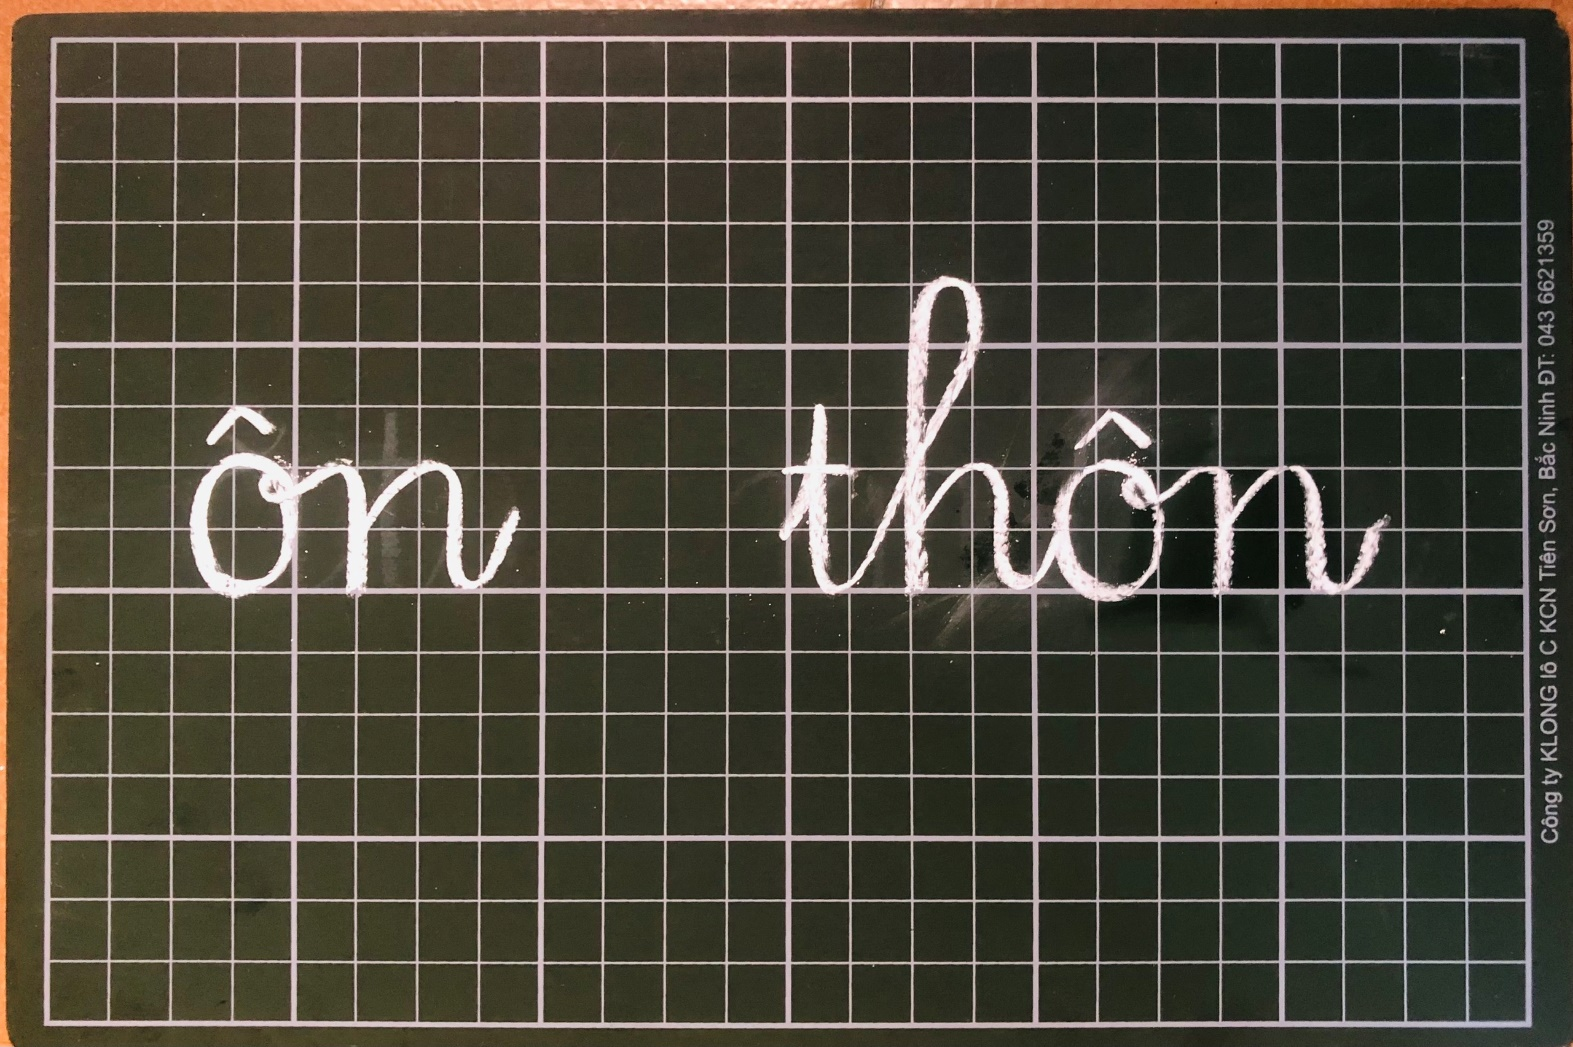 ôn thôn
Công ty KLONG lô C KCN Tiên Sơn, Bắc Ninh ĐT: 043 6621359